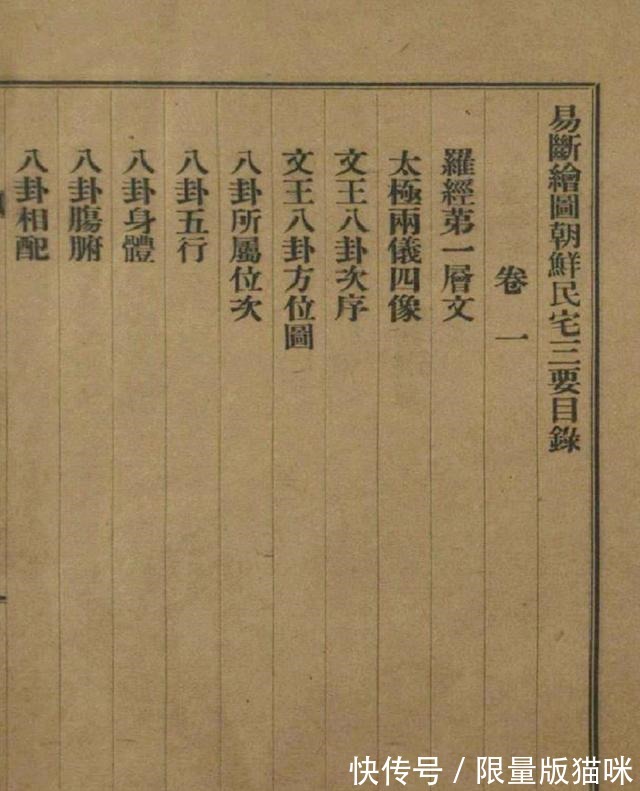 易斷繪圖朝鮮民宅三要目錄
卷一
羅經第一層文
太極兩儀四像
文王八卦次序
文王八卦方位圖
八卦所屬位次
八卦五行
八卦身體
八卦膓腑
八卦相配
快传号/限量版猫咪